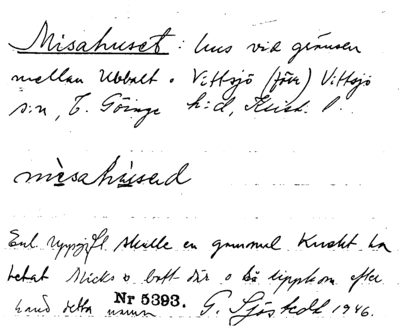 Misahuset : hus vid gränsen
mellan Ubbalt o Vittsjö (förr) Vittsjö
s:n, V. Göinge h:d, Krist. l.
misahused
Enl. uppgift skulle en gammal Knekt ha
hetat Miekes o bott där o så uppkom efter
hand detta namn Nr 5393. G. Sjöstedt 1946.